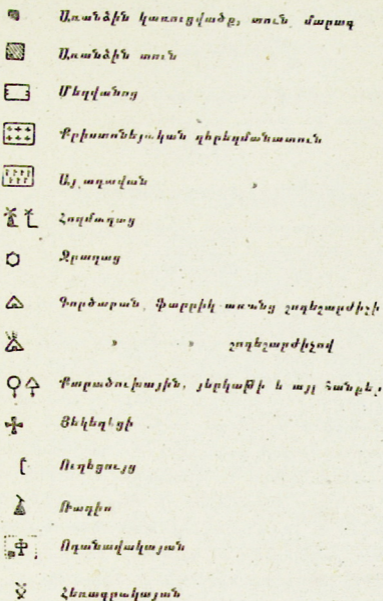 Առանձին կառուցվածք, տուն մարագ
Առանձին տուն
Մեղվանոց
Քրիստոնեյական գերեզմանատուն
Այլ դավան »
Հողմաղաց
Ջրաղաց
Գործարան, ֆաբրիկ առանց շոգեշարժիչի
» » շոգեշարժիչով
Քարածուխային, յերկաթի և այլ հանքեր
Յեկեղեցի
Ուղեցույց
Ռադիո
Ոդանավակայան
Հեռագրակայան